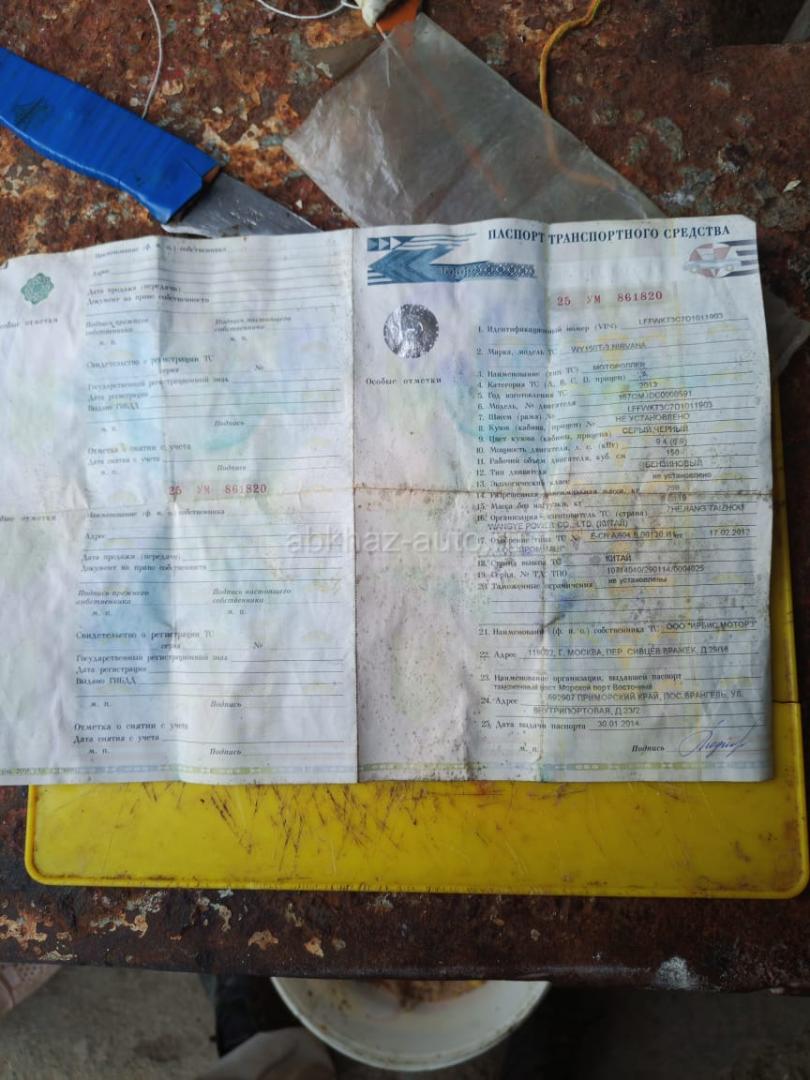 Наименование (ф. и. о.) собственника
Адрес
Дата продажи (передачи)
Документ на право собственности
Особые отметки
Подпись прежнего собственника
Подпись настоящего собственника
м. п.
м. п.
Свидетельство о регистрации ТС
серия №
Государственный регистрационный знак
Дата регистрации
Выдано ГИБДД
м. п.
Подпись
Отметка о снятии с учета
Дата снятия с учета
м. п.
Подпись
25 УМ 861820
особые отметки
Наименование (ф. и. о.) собственника
Адрес
Дата продажи (передачи)
Документ на право собственности
Подпись прежнего собственника
Подпись настоящего собственника
м. п.
м. п.
Свидетельство о регистрации ТС
серия №
Государственный регистрационный знак
Дата регистрации
Выдано ГИБДД
м. п.
Подпись
Отметка о снятии с учета
Дата снятия с учета
м. п.
Подпись
ПАСПОРТ ТРАНСПОРТНОГО СРЕДСТВА
25 УМ 861820
Особые отметки
1. Идентификационный номер (VIN) LFFWKT3C7D1011903
2. Марка, модель ТС WY150T-3 NIRVANA
3. Наименование (тип ТС) МОТОРОЛЛЕР
4. Категория ТС (А, В, С, D, прицеп)
5. Год изготовления ТС 2013
6. Модель, № двигателя
7. Шасси (рама) № LFFWKT3C7D1011903
8. Кузов (кабина, прицеп) № НЕ УСТАНОВЛЕНО
9. Цвет кузова (кабины, прицепа) СЕРЫЙ,ЧЕРНЫЙ
10. Мощность двигателя, л. с. (кВт)
11. Рабочий объем двигателя, куб. см 150
12. Тип двигателя БЕНЗИНОВЫЙ
13. Экологический класс не установлено
14. Разрешенная максимальная масса, кг
15. Масса без нагрузки, кг
16. Организация-изготовитель ТС (страна) ZHEJIANG TAIZHOU
WANGYE POWER CO., LTD. (КИТАЙ)
17. Одобрение типа ТС № от 17.02.2012
18. Страна вывоза ТС КИТАЙ
19. Серия, № ТД, ТПО 10714040/290114/0004025
20. Таможенные ограничения не установлены
21. Наименование (ф. и. о.) собственника ТС ООО "ИРБИС МОТОРС"
22. Адрес 119002, Г. МОСКВА, ПЕР. СИВЦЕВ ВРАЖЕК, Д.29/16
23. Наименование организации, выдавшей паспорт
таможенный пост Морской порт Восточный
24. Адрес 692907 ПРИМОРСКИЙ КРАЙ, ПОС. ВРАНГЕЛЬ, УЛ.
ВНУТРИПОРТОВАЯ, Д.23/2
25. Дата выдачи паспорта 30.01.2014
м. п. Подпись
abkhaz-auto